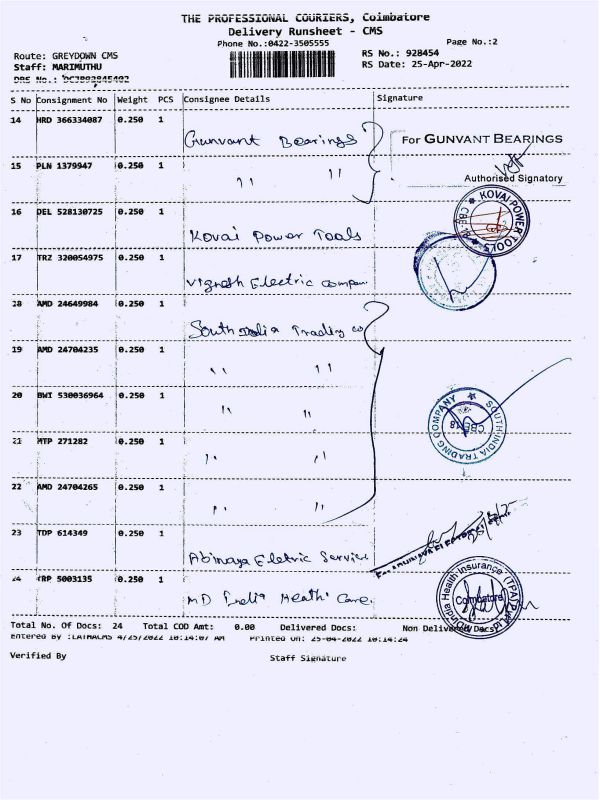 THE PROFESSIONAL COURIERS, Coimbatore
Delivery Runsheet - CMS
Phone No.:0422-3505555
Page No.:2
Route: GREYDOWN CMS
RS No.: 928454
Staff: MARIMUTHU
RS Date: 25-Apr-2022
DRS No.:
S No Consignment No Weight PCS Consignee Details Signature
14 HRD 366334087 0.250 1 Gunvant Bearings For GUNVANT BEARINGS
15 PLN 1379947 0.250 1 " "
Authorised Signatory
16 DEL 528130725 0.250 1 Kovai Power Tools KOVAI POWER TOOLS
17 TRZ 320054975 0.250 1 Vignesh Electric Compan
18 AMD 24649984 0.250 1 South India Trading co
19 AMD 24704235 0.250 1 " "
20 BWI 530036964 0.250 1 " " SOUTH INDIA TRADING COMPANY CBE-18
21 MTP 271282 0.250 1 " "
22 AMD 24704265 0.250 1 " "
23 TDP 614349 0.250 1 Abinaya Eletric Service
24 TRP 5003135 0.250 1 MD India Heath Care. MDIndia Health Insurance (TPA) Pvt Ltd Coimbatore
Total No. Of Docs: 24 Total COD Amt: 0.00 Delivered Docs: Non Delivered Docs:
Entered By :LATHACMS 4/25/2022 10:14:07 AM Printed On: 25-04-2022 10:14:24
Verified By Staff Signature